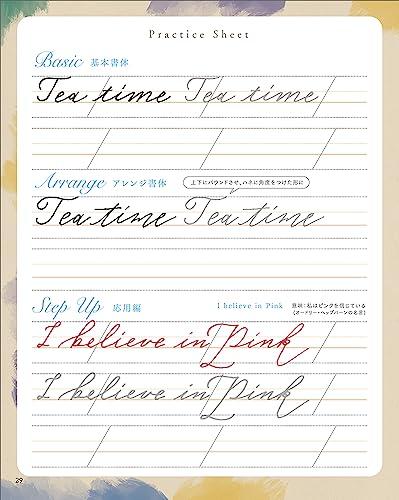 Practice Sheet
Basic 基本書体
Tea time Tea time
Arrange アレンジ書体 上下にバウンドさせ、ハネに角度をつけた形に
Tea time Tea time
Step Up 応用編 I believe in Pink 意味:私はピンクを信じている
(オードリー・ヘップバーンの名言)
I believe in Pink
I believe in Pink
29